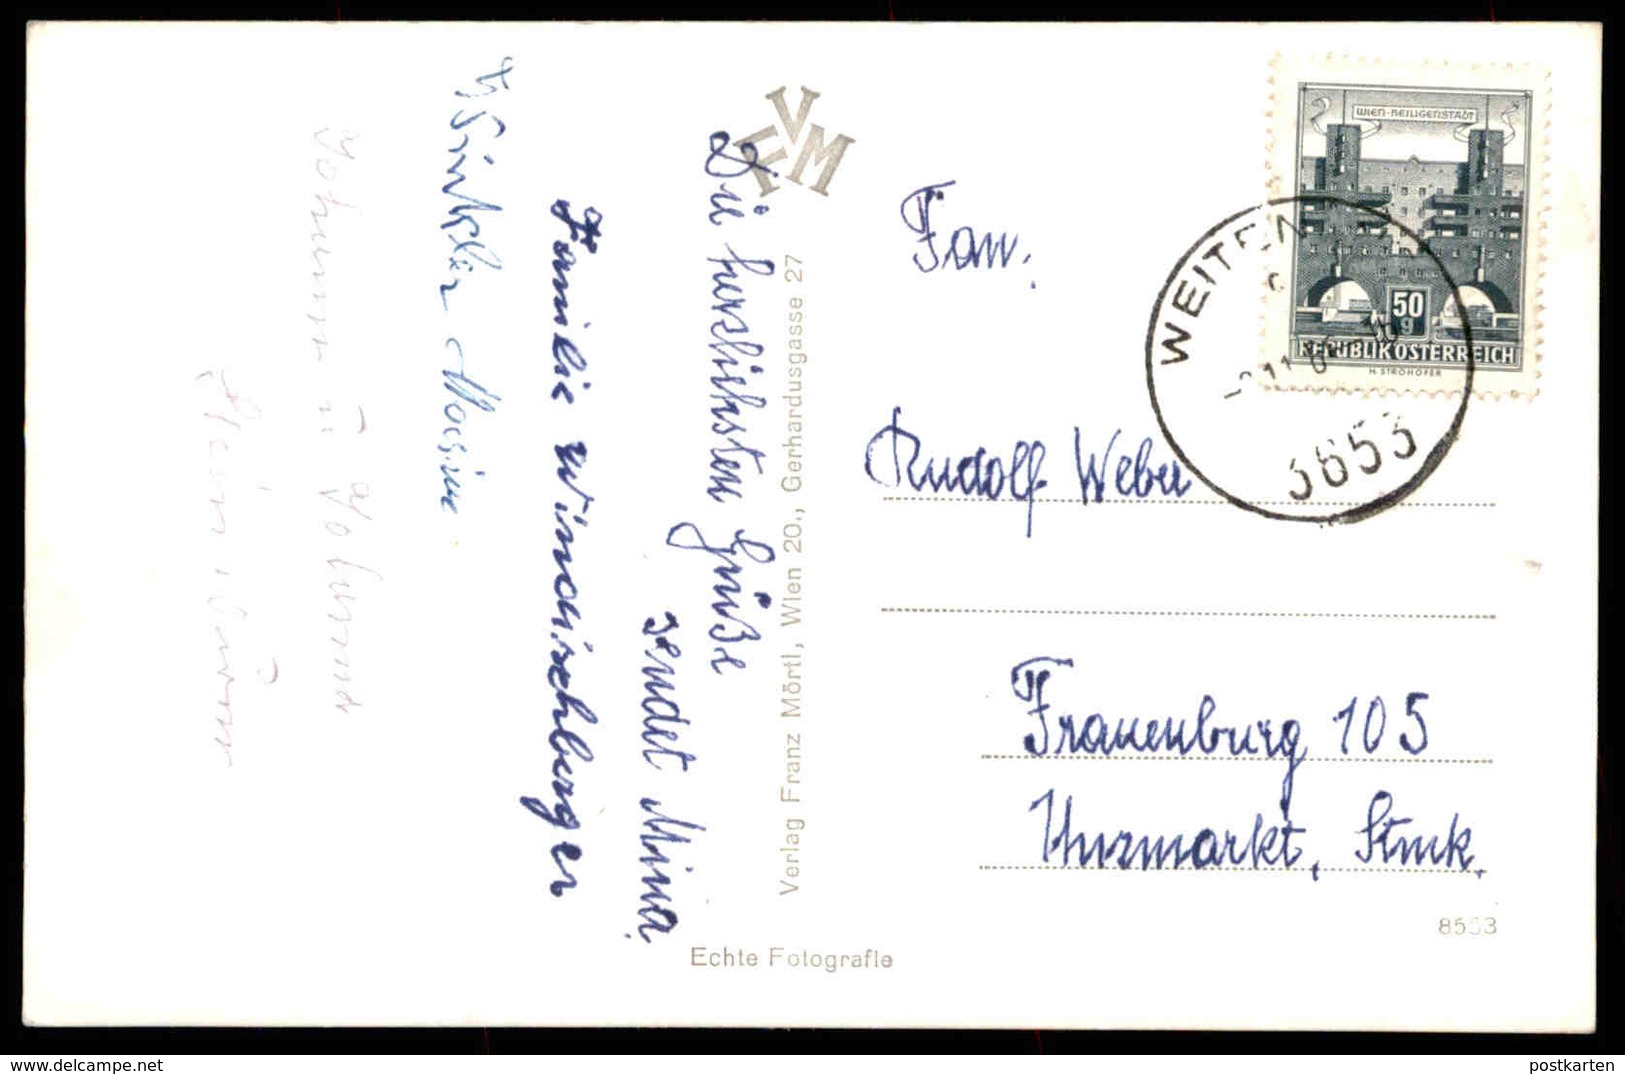 VFM
Die herzlichsten Grüße
sendet Mina.
Familie Windischberger
Winkler
Echte Fotografie
Verlag Franz Mörtl, Wien 20., Gerhardusgasse 27
WIEN-HEILIGENSTADT
50 g
REPUBLIK ÖSTERREICH
H. STROHOFER
WEITEN
3653
Fam.
Rudolf Weber
Frauenburg 105
Unzmarkt, Stmk.
8553
http://www.ansichtskarten-center.de
postkarten